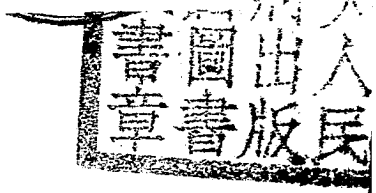 人民
出版
圖書
書章